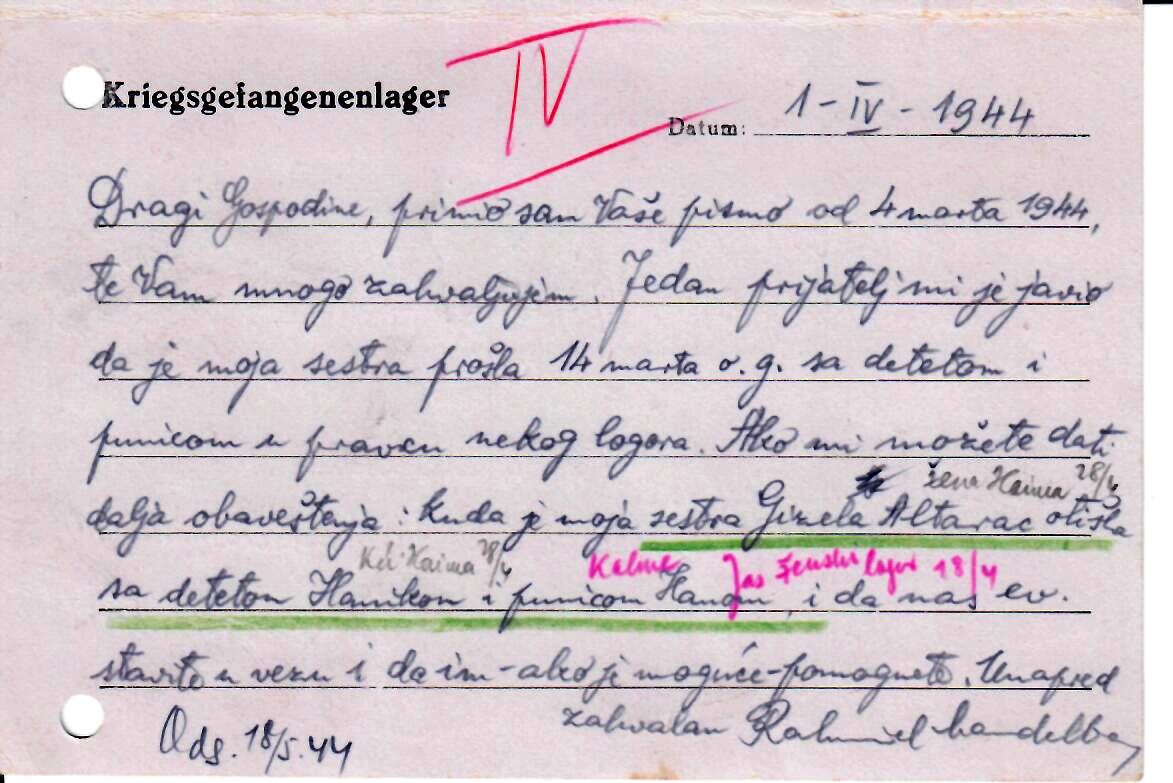 IV
Kriegsgefangenenlager
Datum: 1-IV-1944
Dragi Gospodine, primio sam Vaše pismo od 4 marta 1944,
te Vam mnogo zahvaljujem. Jedan prijatelj mi je javio
da je moja sestra prošla 14 marta o.g. sa detetom i
punicom u pravcu nekog logora. Ako mi možete dati
žena Haima 28/4
dalja obaveštenja: kuda je moja sestra Gizela Altarac otišla
Kći Haima 28/4 Kalme Jas ženski logor 18/4
sa detetom Hanikom i punicom Hanom, i da nas ev.
stavite u vezu i da im - ako je moguće - pomognete. Unapred
zahvalan Rahmiel
Ods. 18/5.44